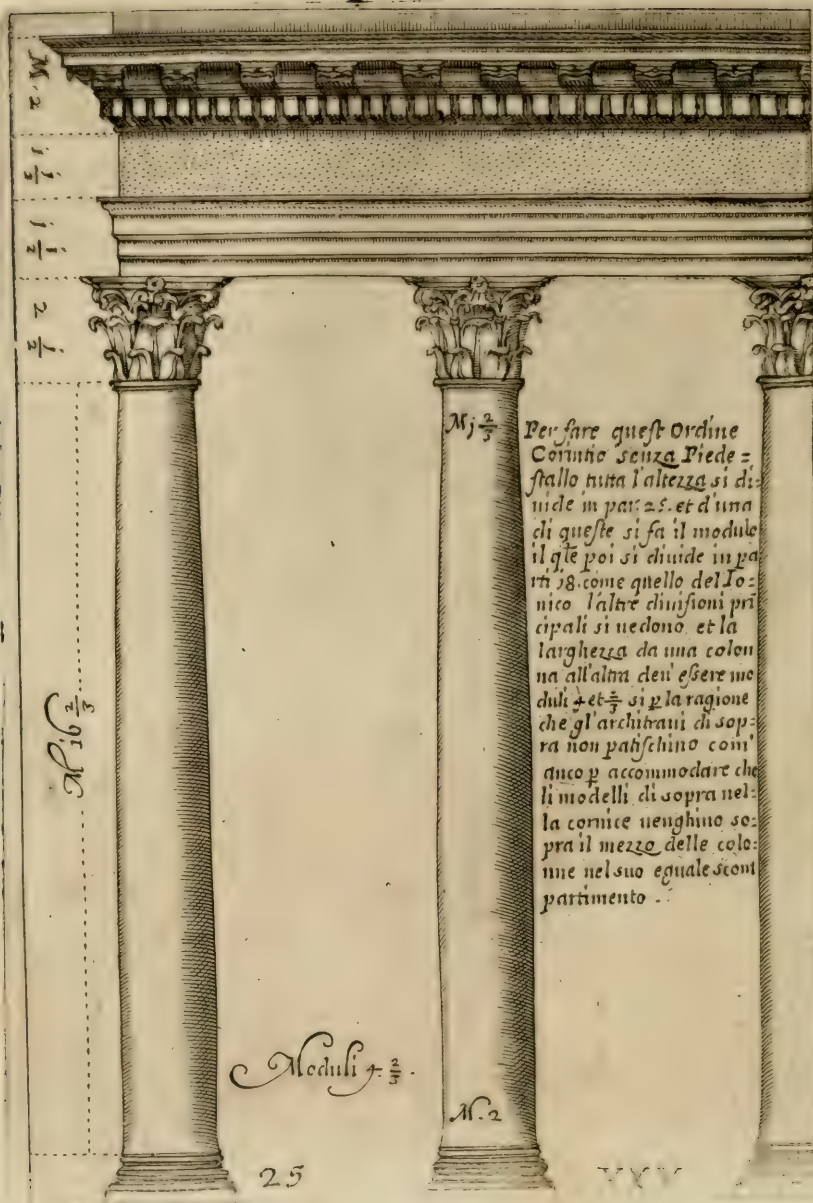 M. 2
i 1/2
i 1/2
2 1/2
M 16 2/3
M j 2/3
Per fare quest Ordine
Corintio senza Piede =
stallo tutta l'altezza si di:
uide in par: 25. et d'una
di queste si fa il modulo
il qle poi si diuide in pa
rti 18. come quello del Io:
nico l'altre diuisioni pri
cipali si uedono, et la
larghezza da una colon
na all'altra deu' essere mo
duli 4 et 2/3 si p la ragione
che gl'architraui di sop:
ra non patischino com'
anco p accommodare che
li modelli di sopra nel:
la cornice uenghino so:
pra il mezzo delle colo:
nne nel suo eguale scom
partimento .
Moduli 4. 2/3 .
M. 2
25